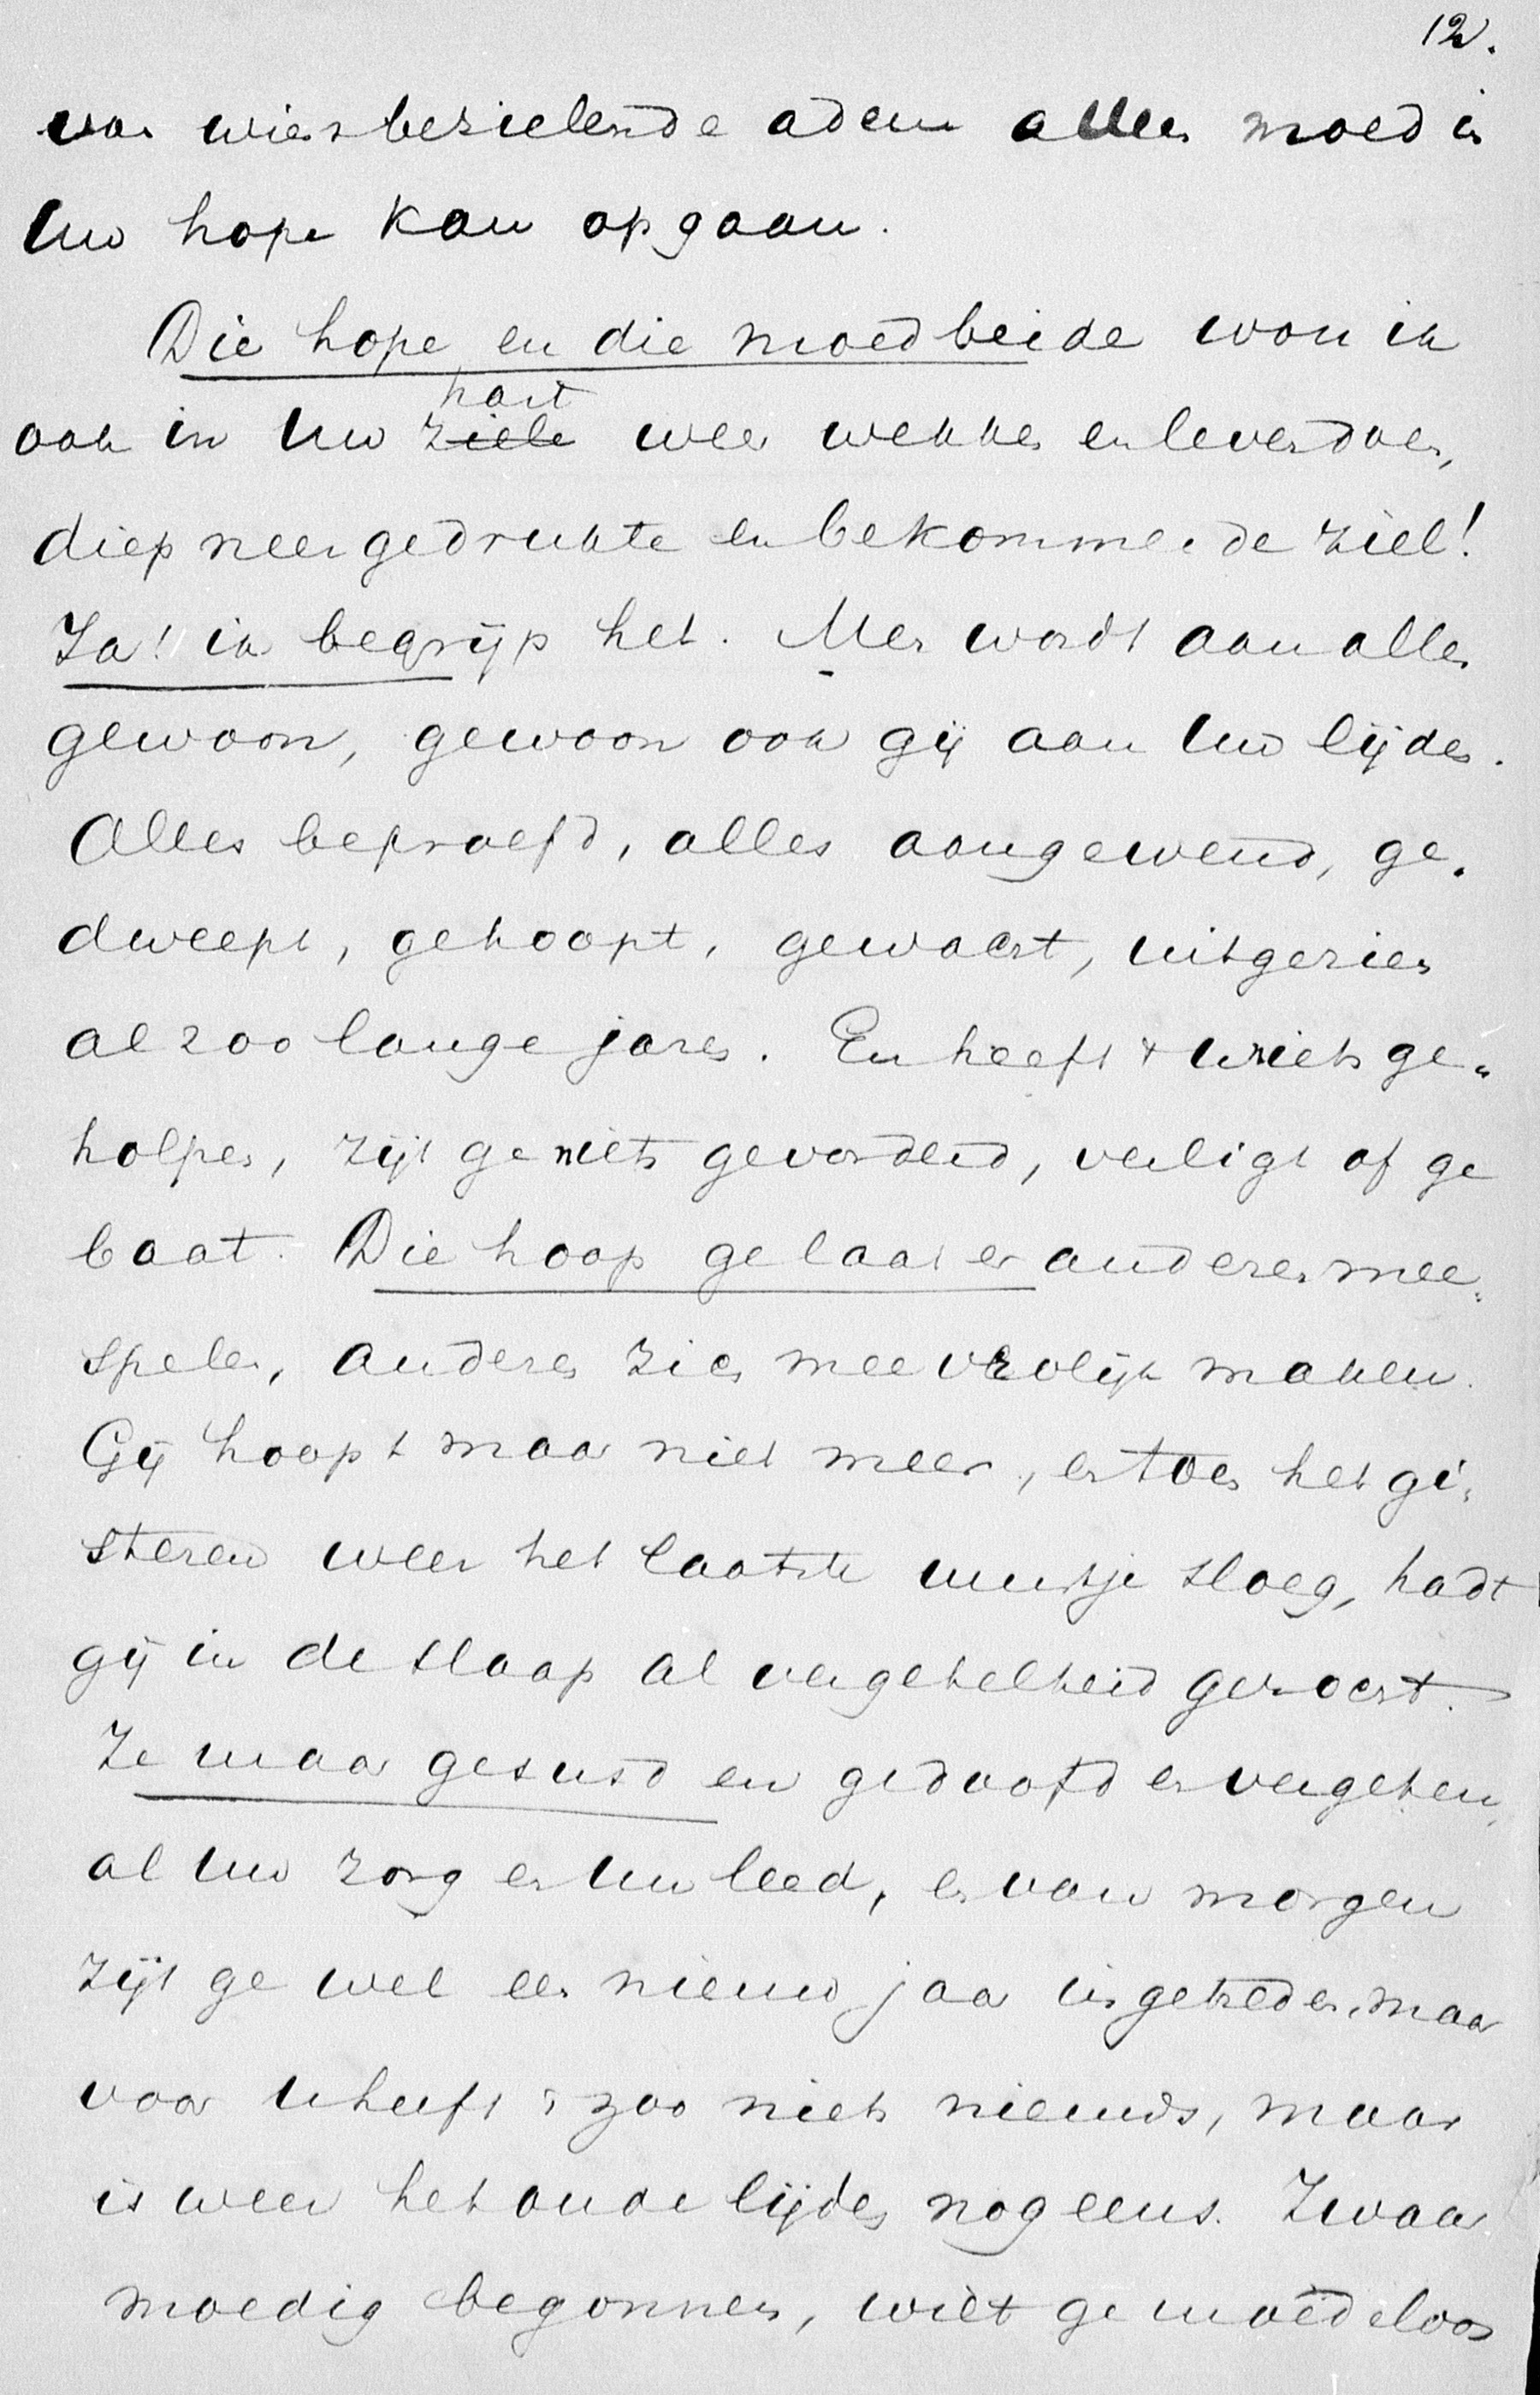 12.
van wier bezielende adem alle moed in
Uw hope kan opgaan.
Die hope en die moed beide wou ik
hart
ook in Uw ziele weer wekken en levend doen,
diep neergedrukte en bekommerde ziel!
Ja! ik begrijp het. Men wordt aan alles
gewoon, gewoon ook gij aan Uw lijden.
Alles beproefd, alles aangewend, ge-
dweept, gehoopt, gewacht, uitgezien
al zoo lange jaren. En heeft 't U niets ge-
holpen, zijt ge niets gevorderd, veiligt of ge
baat. Die hoop ge laat er anderen mee
spelen, anderen zich mee vrolijk maken.
Gij hoopt maar niet meer, en toen het gi-
steren weer het laatste uurtje sloeg, hadt
gij in de slaap al vergetelheid gezocht.
Ze maar gesust en gedoofd en vergeten,
al Uw zorg en Uw leed, en van morgen
zijt ge wel een nieuw jaar ingetreden, maar
voor U heeft 't zoo niets nieuws, maar
is weer het oude lijden nog eens. Zwaar
moedig begonnen, wilt ge moedeloos